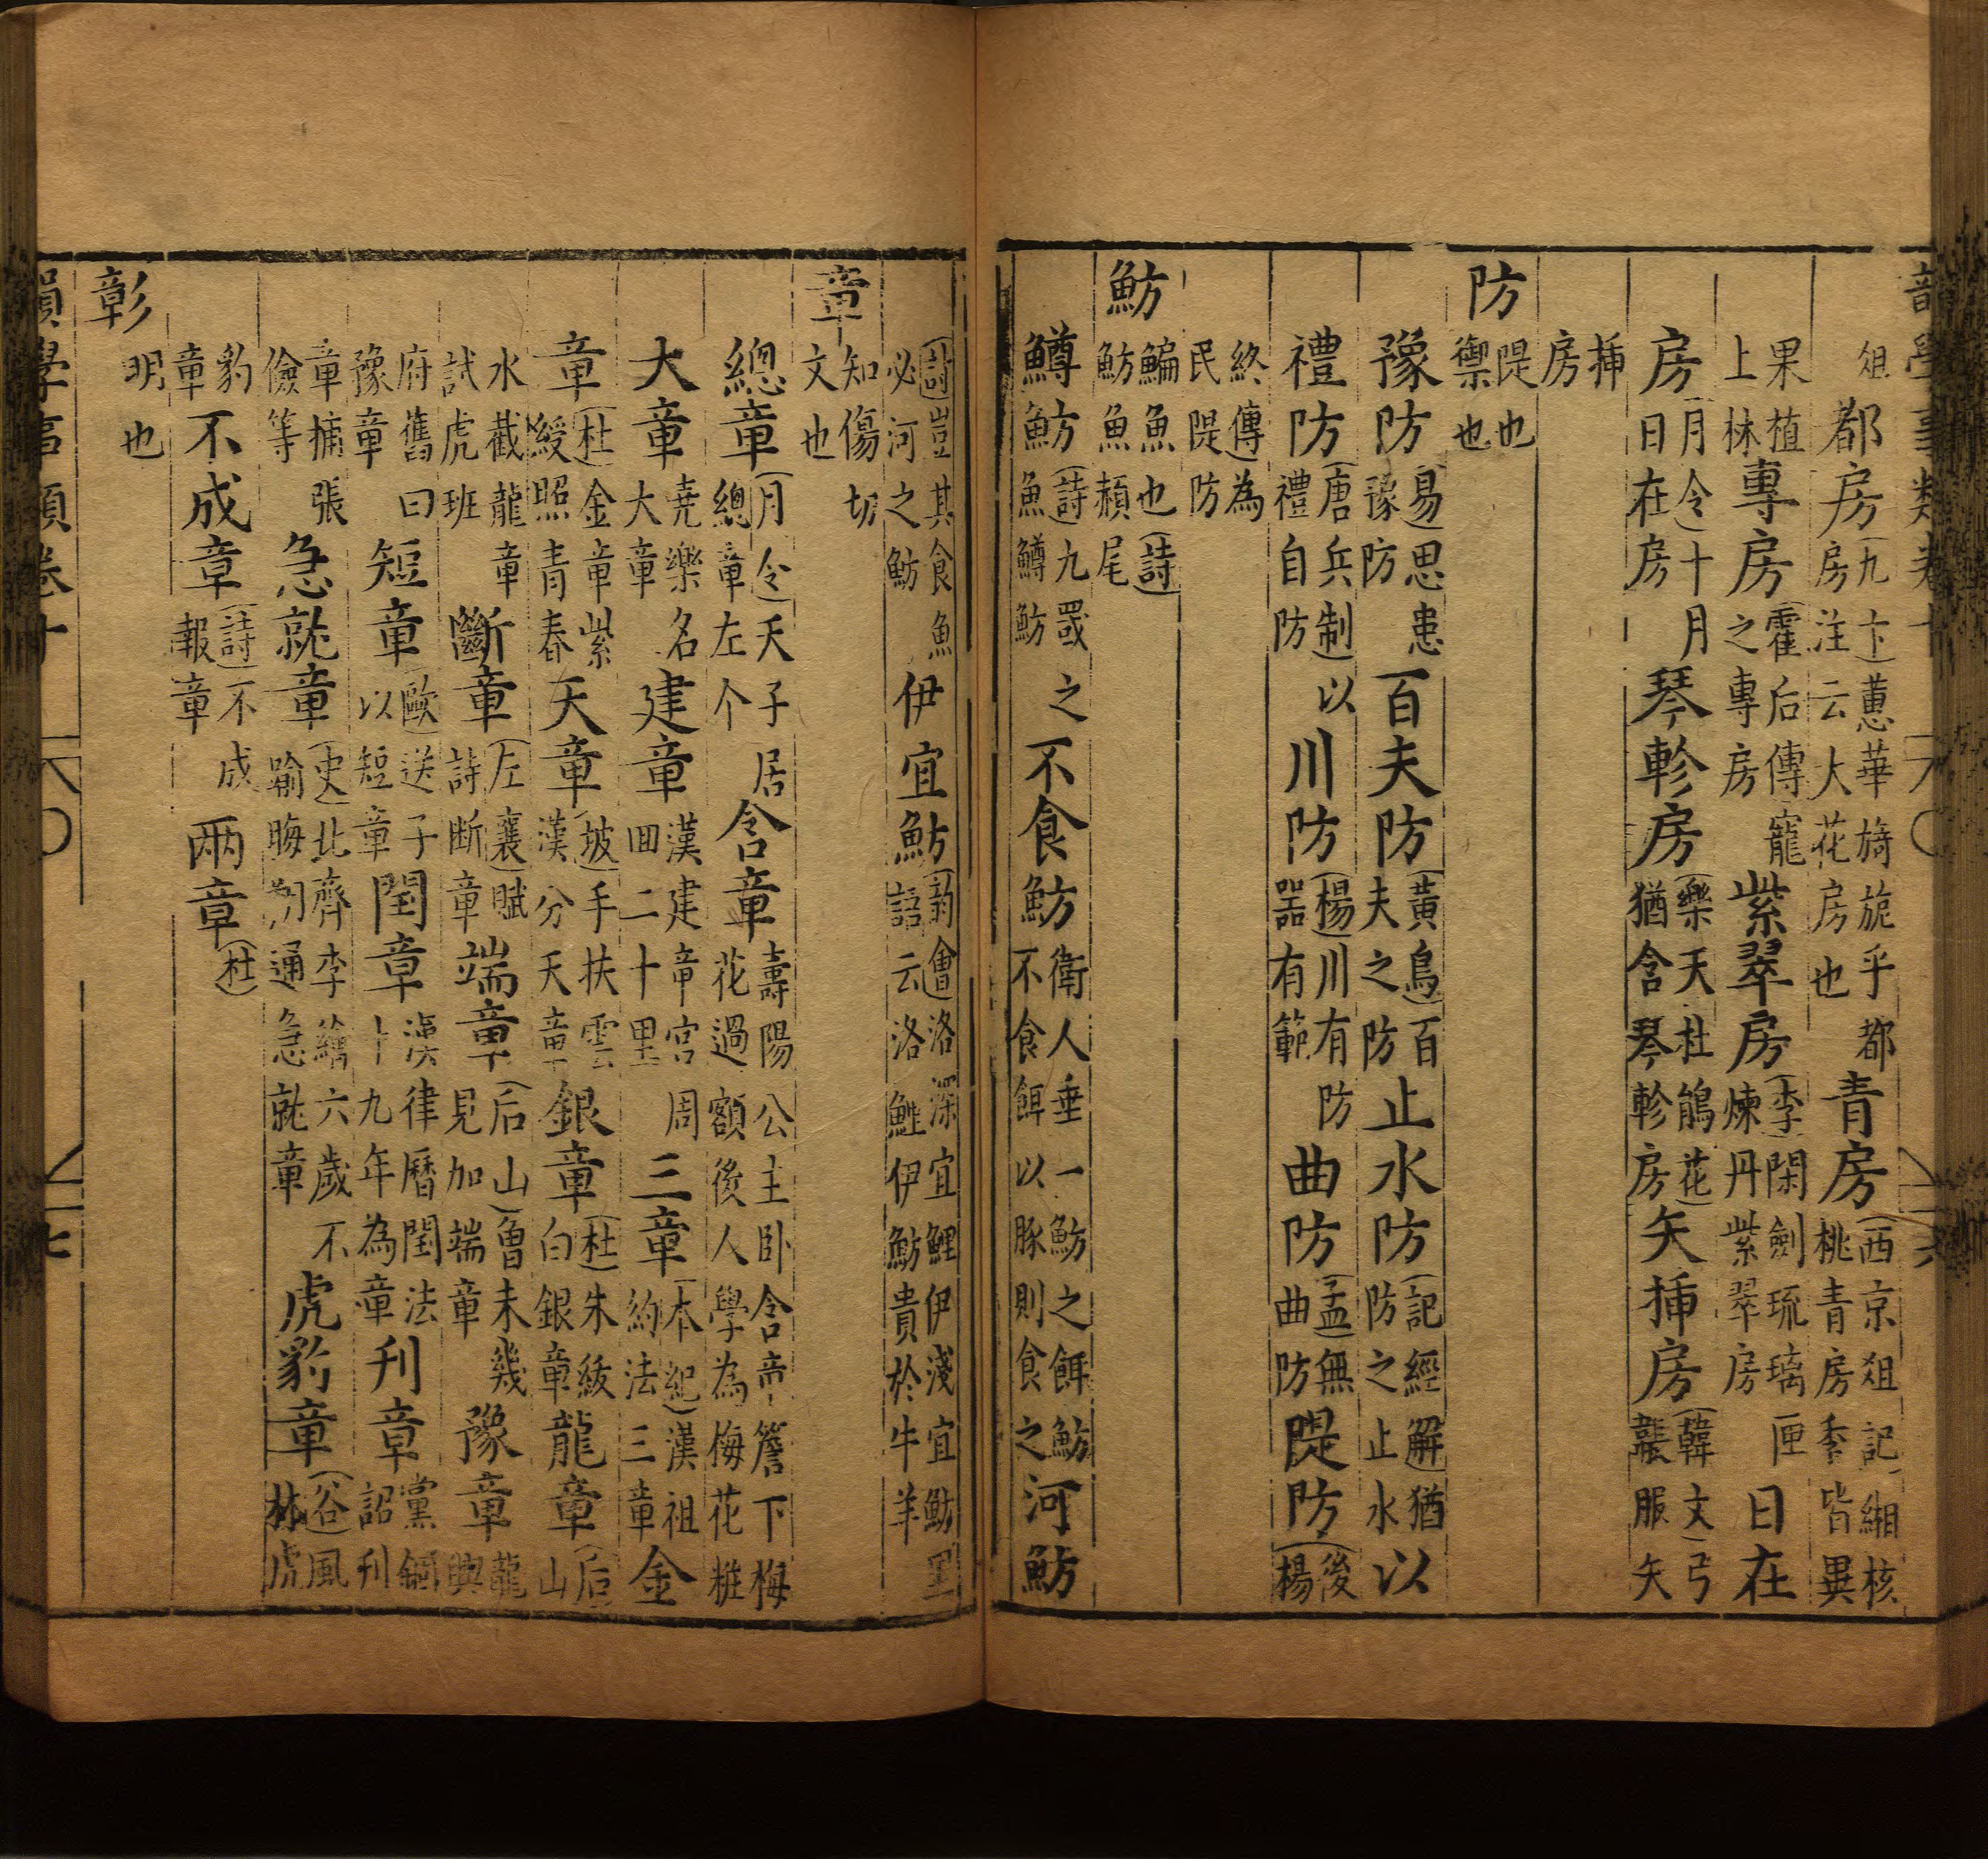 韻學事類卷十 六
俎都房(九卞)蕙華旖旎乎都房注云大花房也青房(西京俎記)緗核桃青房季皆異
果植上林專房(霍后傳)寵之專房紫翠房(李)閑劍琉璃匣煉丹紫翠房日在
房(月令)十月日在房琴軫房(樂天杜鵑花)猶含琴軫房矢揷房(韓文)弓韔服矢
揷房
防隄也禦也
豫防(易)思患豫防百夫防(黃鳥)百夫之防止水防(記經解)猶防之止水以
禮防(唐兵制)以禮自防川防(楊)川有防器有範曲防(孟)無曲防隄防(後楊
終傳)為民隄防
魴鯿魚也(詩)魴魚赬尾
鱒魴(詩)九罭之魚鱒魴不食魴衛人垂一魴之餌魴不食餌以豚則食之河魴
(詩)豈其食魚必河之魴伊宜魴(韵會)洛深宜鯉伊淺宜魴里語云洛鯉伊魴貴於牛羊
章知傷切文也
總章(月令)天子居總章左个含章壽陽公主卧含章簷下梅花過額後人學為梅花粧
大章堯樂名大章建章漢建章宮周回二十里三章(本紀)漢祖約法三章金
章(杜)金章紫綬照青春天章(坡)手扶雲漢分天章銀章(杜)朱紱白銀章龍章(后山
水截龍章試虎班斷章(左襄)賦詩断章端章(后山)曾未幾見加端章豫章龍興
府舊曰豫章短章(歐)送子以短章閏章漢律曆閏法十九年為章刋章黨錮詔刋
章捕張儉等急就章(史)北齊李繪六歲不踰晦朔通急就章虎豹章(谷)風林虎
豹章不成章(詩)不成報章兩章(杜)
彰明也
韻學事類卷十 七